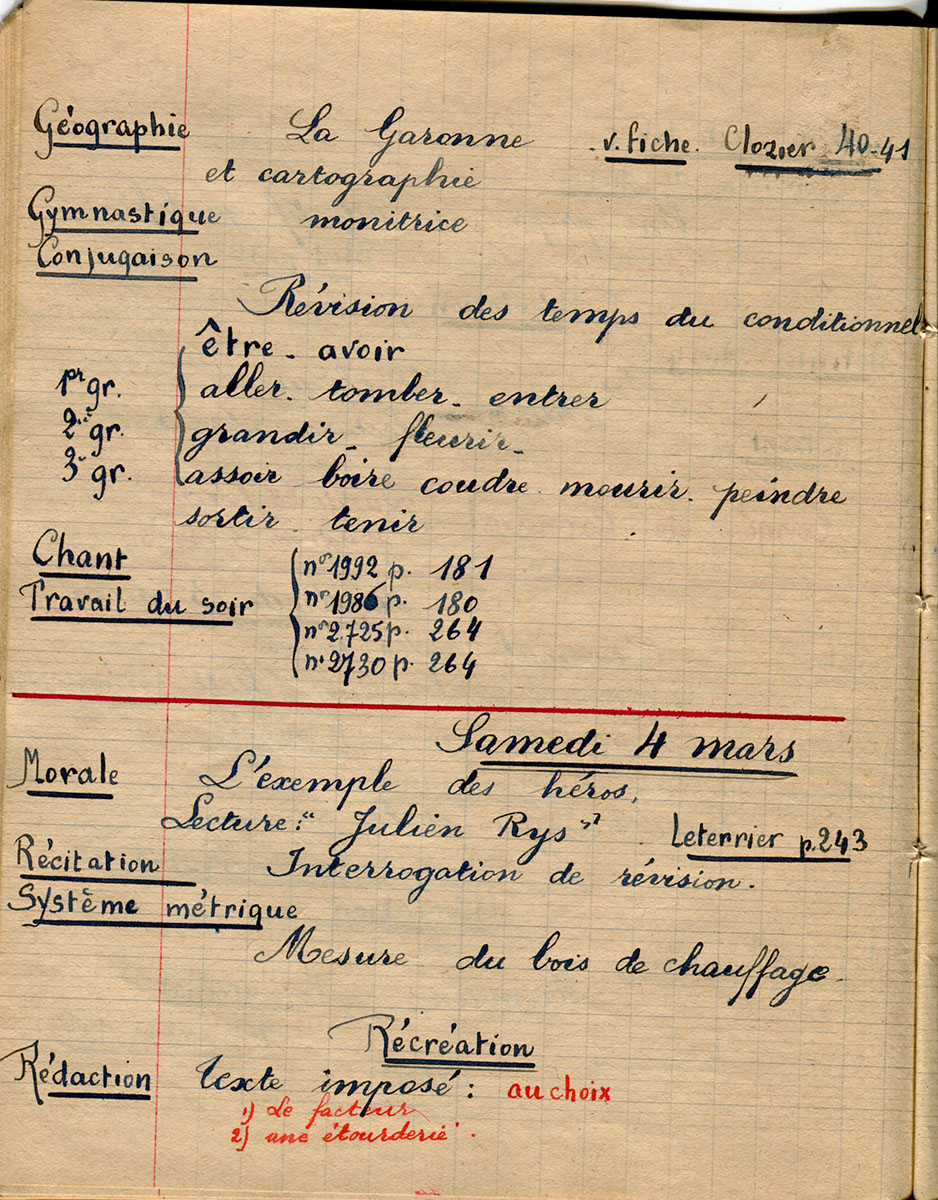 Géographie La Garonne v. fiche. Clozier 40-41
et cartographie
Gymnastique monitrice
Conjugaison
Révision des temps du conditionnel
être - avoir
1er gr. aller - tomber - entrer
2e gr. grandir - fleurir -
3e gr. assoir boire coudre mourir - peindre
sortir - tenir
Chant n° 1992 p. 181
Travail du soir n° 1986 p. 180
n° 2.725 p. 264
n° 2730 p. 264
Samedi 4 mars
Morale L'exemple des héros.
Lecture : " Julien Rys " Leterrier p. 243
Récitation Interrogation de révision.
Système métrique
Mesure du bois de chauffage.
Récréation
Rédaction texte imposé : au choix
1) Le facteur
2) une étourderie.